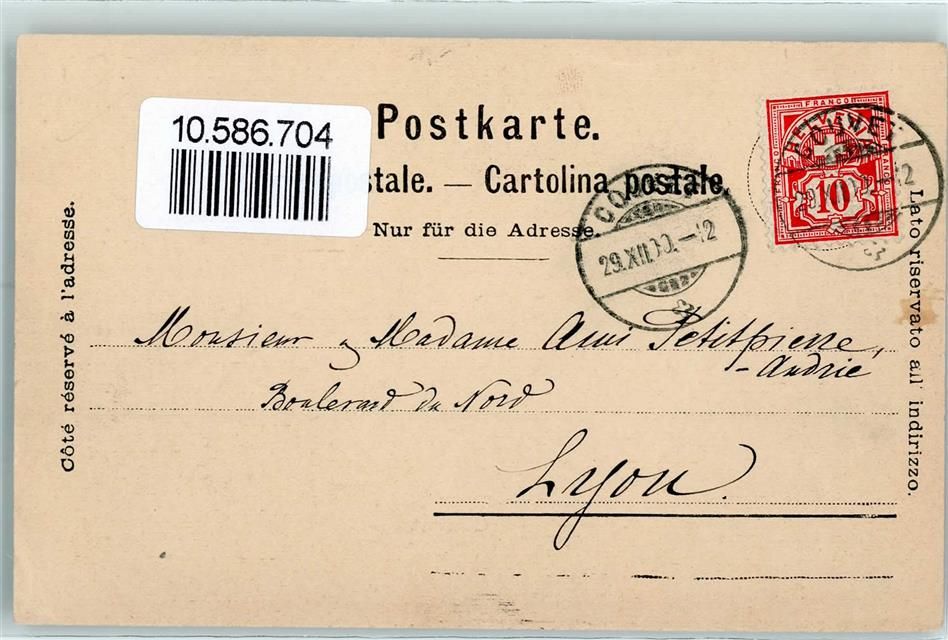 10.586.704
Postkarte.
stale. — Cartolina postale.
Nur für die Adresse.
Côté réservé à l'adresse.
Lato riservato all' indirizzo.
FRANCO
HELVETIA
10
29.XII.00.–12
Monsieur & Madame Ami Petitpierre,
-Andrié
Boulevard du Nord
Lyon.